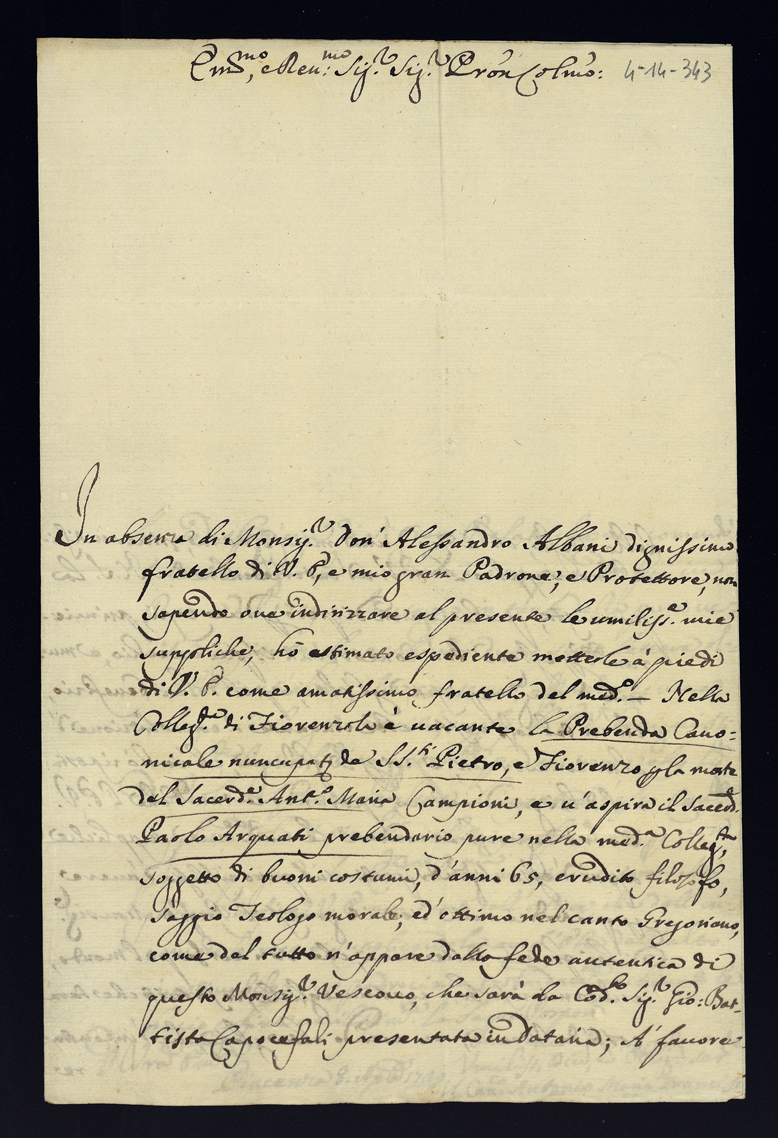 Em.mo, e Reu:mo Sig.r Sig.r Prôn Colmô: 4-14-343
In absenza di Monsig.r Don Alessandro Albani dignissimo
fratello di V. E, e mio gran Padrone, e Protettore, non
sapendo oue indirizzare al presente le umiliss.e mie
suppliche, hò estimato espediente metterle à piedi
di V. E. come amatissimo fratello del med.o — Nella
Colleg.ta di Fiorenzola è uacante la Prebenda Cano-
nicale nuncupata de SS.ti Pietro, e Fiorenzo p la morte
del Sacerd.e Ant.o Maria Campioni, e u'aspira il Sacerd.e
Paolo Arquati prebendario pure nella med.a Colleg.ta,
soggetto di buoni costumi, d'anni 65, erudito filosofo,
saggio Teologo morale, ed'ottimo nel canto Gregoriano,
come del tutto n'appare dalla fede autentica di
questo Monsig.r Vescouo, che sarà da Sig.r Gio: Bat-
tista Capocefali presentata in dataria; A' fauore